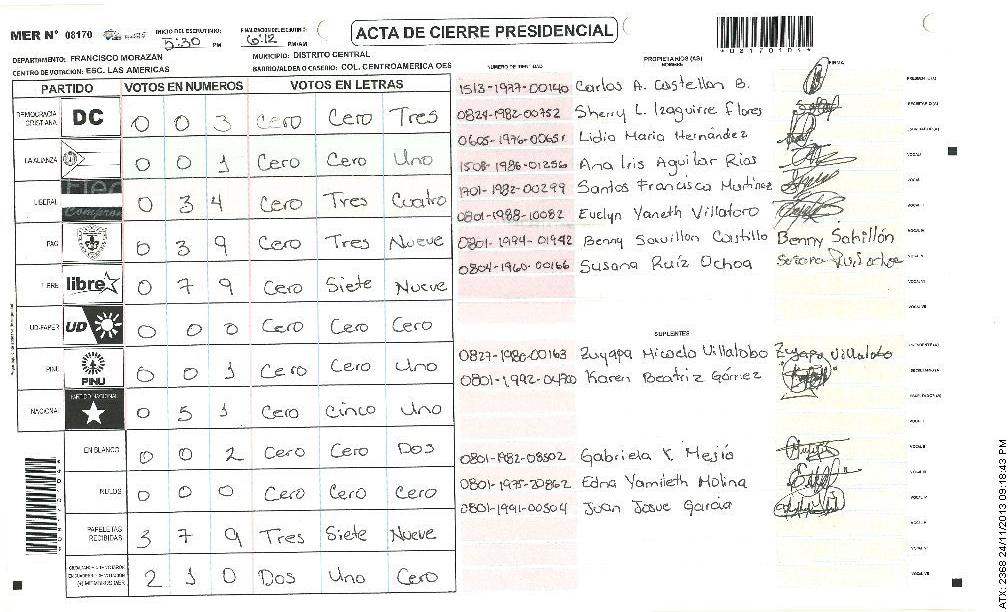 MER N° 08170
INICIO DEL ESCRUTINIO: 5:30 PM
FINALIZACION DEL ESCRUTINIO: 6:12 PM/AM
ACTA DE CIERRE PRESIDENCIAL
DEPARTAMENTO: FRANCISCO MORAZAN
MUNICIPIO: DISTRITO CENTRAL
CENTRO DE VOTACION: ESC. LAS AMERICAS
BARRIO/ALDEA O CASERIO: COL. CENTROAMERICA OES
PARTIDO VOTOS EN NUMEROS VOTOS EN LETRAS
DEMOCRACIA CRISTIANA DC 0 0 3 Cero Cero Tres
LA ALIANZA 0 0 1 Cero Cero Uno
LIBERAL 0 3 4 Cero Tres Cuatro
PAC 0 3 9 Cero Tres Nueve
LIBRE libre 0 7 9 Cero Siete Nueve
UD-FAPER UD 0 0 0 Cero Cero Cero
PINU PINU 0 0 1 Cero Cero Uno
NACIONAL PARTIDO NACIONAL 0 5 1 Cero Cinco Uno
EN BLANCO 0 0 2 Cero Cero Dos
NULOS 0 0 0 Cero Cero Cero
PAPELETAS RECIBIDAS 3 7 9 Tres Siete Nueve
2 1 0 Dos Uno Cero
NUMERO DE IDENTIDAD PROPIETARIOS (AS) NOMBRE FIRMA
1513-1977-00140 Carlos A. Castellon B.
0824-1982-00752 Sherry L. Izaguirre Flores
0605-1976-00651 Lidia Maria Hernández
1508-1986-01256 Ana Iris Aguilar Rios
1701-1982-00299 Santos Francisco Martinez
0801-1988-10082 Evelyn Yaneth Villatoro
0801-1994-01942 Benny Savillon Castillo Benny Sabillón
0804-1960-00166 Susana Ruíz Ochoa
SUPLENTES
0827-1980-00163 Zuyapa Micaela Villalobo Zuyapa Villalobo
0801-1992-04700 Karen Beatriz Gómez
0801-1982-08502 Gabriela K. Mejia
0801-1975-20862 Edna Yamileth Molina
0801-1991-00504 Juan Josue Garcia
ATX: 2368 24/11/2013 09:18:43 PM